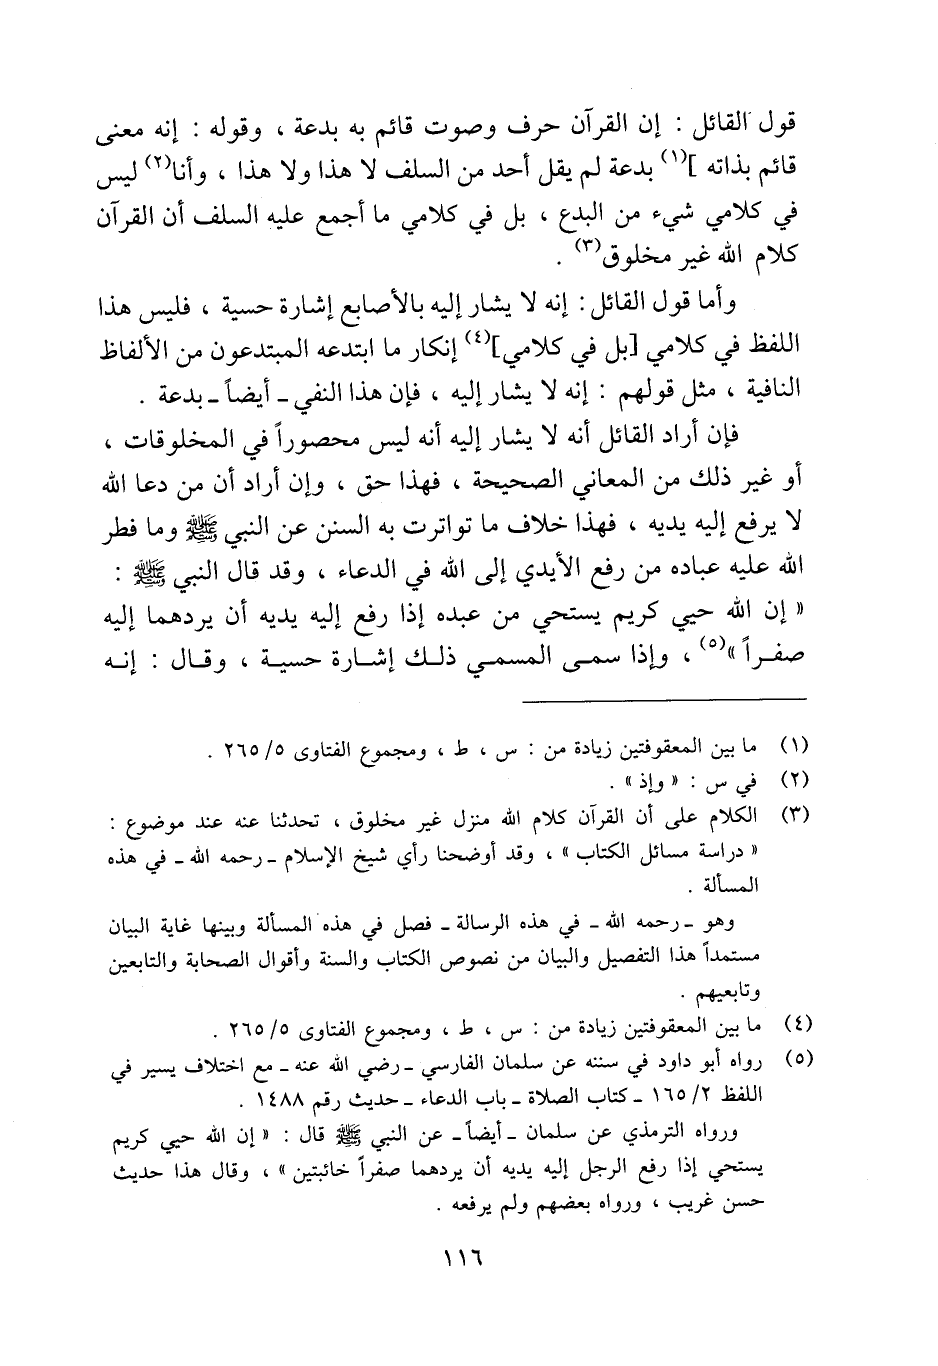 قول القائل : إن القرآن حرف وصوت قائم به بدعة ، وقوله : إنه معنى
قائم بذاته ](١) بدعة لم يقل أحد من السلف لا هذا ولا هذا ، وأنا(٢) ليس
في كلامي شيء من البدع ، بل في كلامي ما أجمع عليه السلف أن القرآن
كلام الله غير مخلوق(٣) .
وأما قول القائل : إنه لا يشار إليه بالأصابع إشارة حسية ، فليس هذا
اللفظ في كلامي [بل في كلامي](٤) إنكار ما ابتدعه المبتدعون من الألفاظ
النافية ، مثل قولهم : إنه لا يشار إليه ، فإن هذا النفي ـ أيضاً ـ بدعة .
فإن أراد القائل أنه لا يشار إليه أنه ليس محصوراً في المخلوقات ،
أو غير ذلك من المعاني الصحيحة ، فهذا حق ، وإن أراد أن من دعا الله
لا يرفع إليه يديه ، فهذا خلاف ما تواترت به السنن عن النبي ﷺ وما فطر
الله عليه عباده من رفع الأيدي إلى الله في الدعاء ، وقد قال النبي ﷺ :
« إن الله حيي كريم يستحي من عبده إذا رفع إليه يديه أن يردهما إليه
صفـراً »(٥) ، وإذا سمـى المسمـي ذلـك إشـارة حسيـة ، وقـال : إنـه
(١) ما بين المعقوفتين زيادة من : س ، ط ، ومجموع الفتاوى ٢٦٥/٥ .
(٢) في س : « وإذ » .
(٣) الكلام على أن القرآن كلام الله منزل غير مخلوق ، تحدثنا عنه عند موضوع :
« دراسة مسائل الكتاب » ، وقد أوضحنا رأي شيخ الإسلام ـ رحمه الله ـ في هذه
المسألة .
وهو ـ رحمه الله ـ في هذه الرسالة ـ فصل في هذه المسألة وبينها غاية البيان
مستمداً هذا التفصيل والبيان من نصوص الكتاب والسنة وأقوال الصحابة والتابعين
وتابعيهم .
(٤) ما بين المعقوفتين زيادة من : س ، ط ، ومجموع الفتاوى ٢٦٥/٥ .
(٥) رواه أبو داود في سننه عن سلمان الفارسي ـ رضي الله عنه ـ مع اختلاف يسير في
اللفظ ١٦٥/٢ ـ كتاب الصلاة ـ باب الدعاء ـ حديث رقم ١٤٨٨ .
ورواه الترمذي عن سلمان ـ أيضاً ـ عن النبي ﷺ قال : « إن الله حيي كريم
يستحي إذا رفع الرجل إليه يديه أن يردهما صفراً خائبتين » ، وقال هذا حديث
حسن غريب ، ورواه بعضهم ولم يرفعه .
١١٦